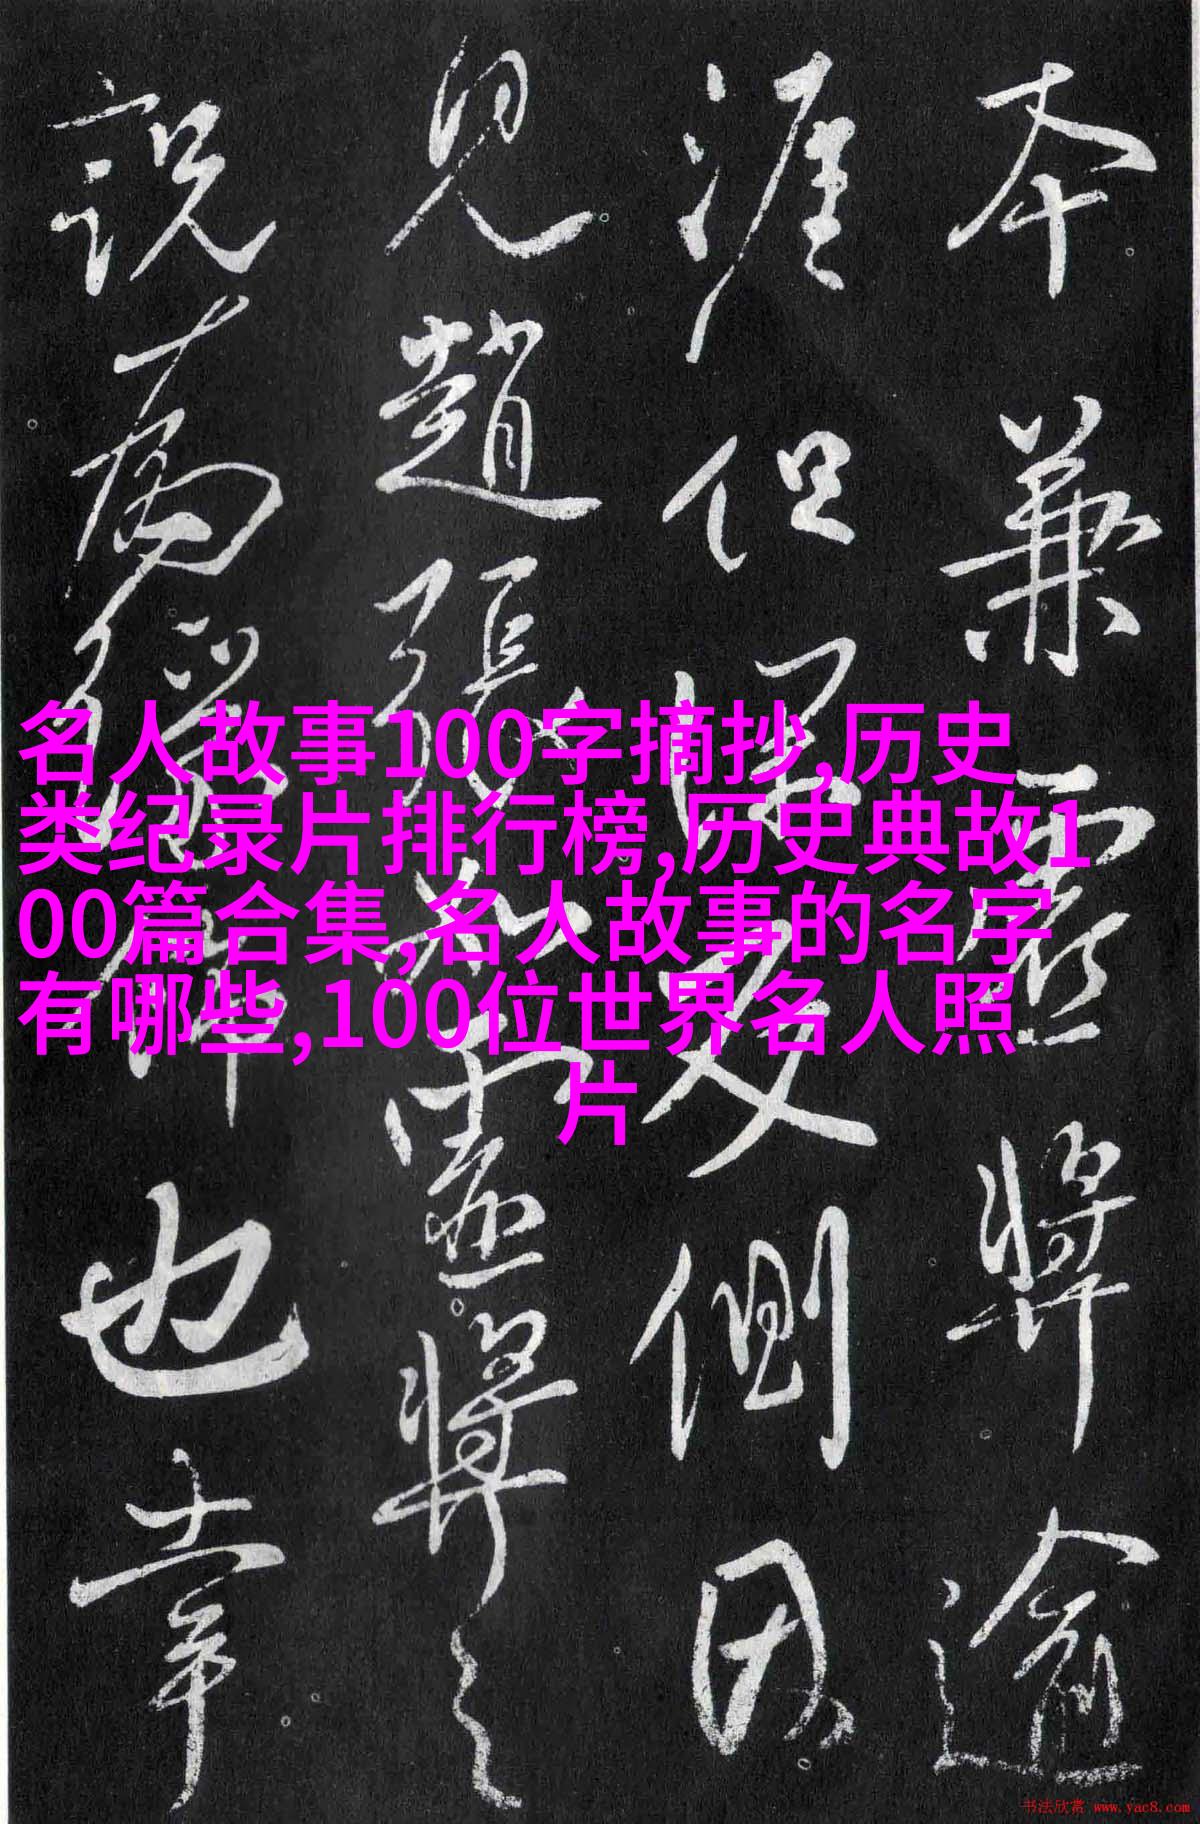 本兼 将逾
涯但 反側因
見趙張 將之
説 也
名人故事100字摘抄,历史
类纪录片排行榜,历史典故1
00篇合集,名人故事的名字
有哪些,100位世界名人照
片
书法欣赏 www.yac8.com